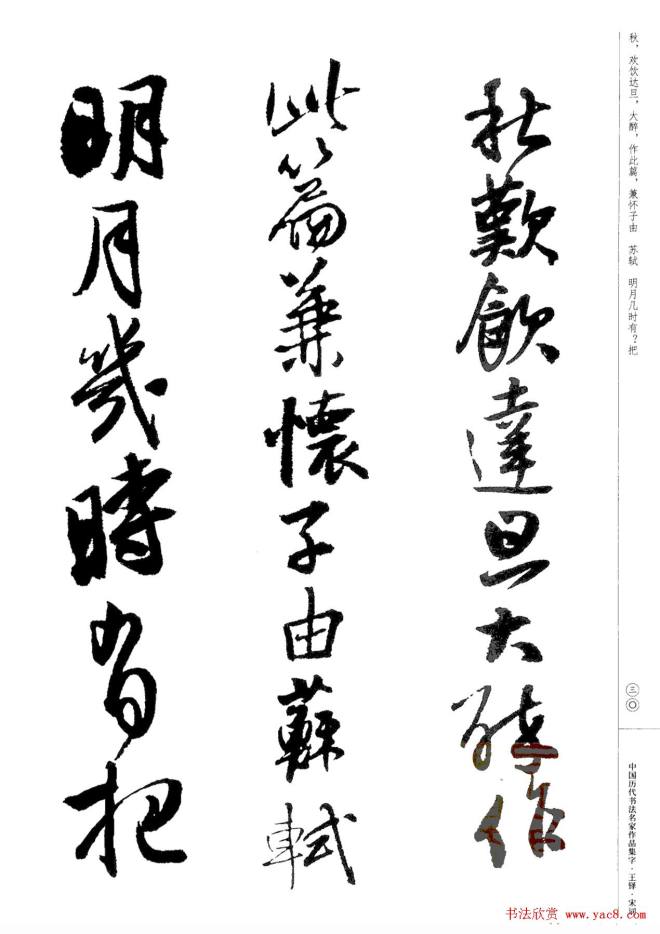 秋，欢饮达旦，大醉，作此篇，兼怀子由　苏轼　明月几时有？把
秋歡飲達旦大醉作
此篇兼懷子由蘇軾
明月幾時有把
三〇
中国历代书法名家作品集字·王铎·宋词
书法欣赏 www.yac8.com